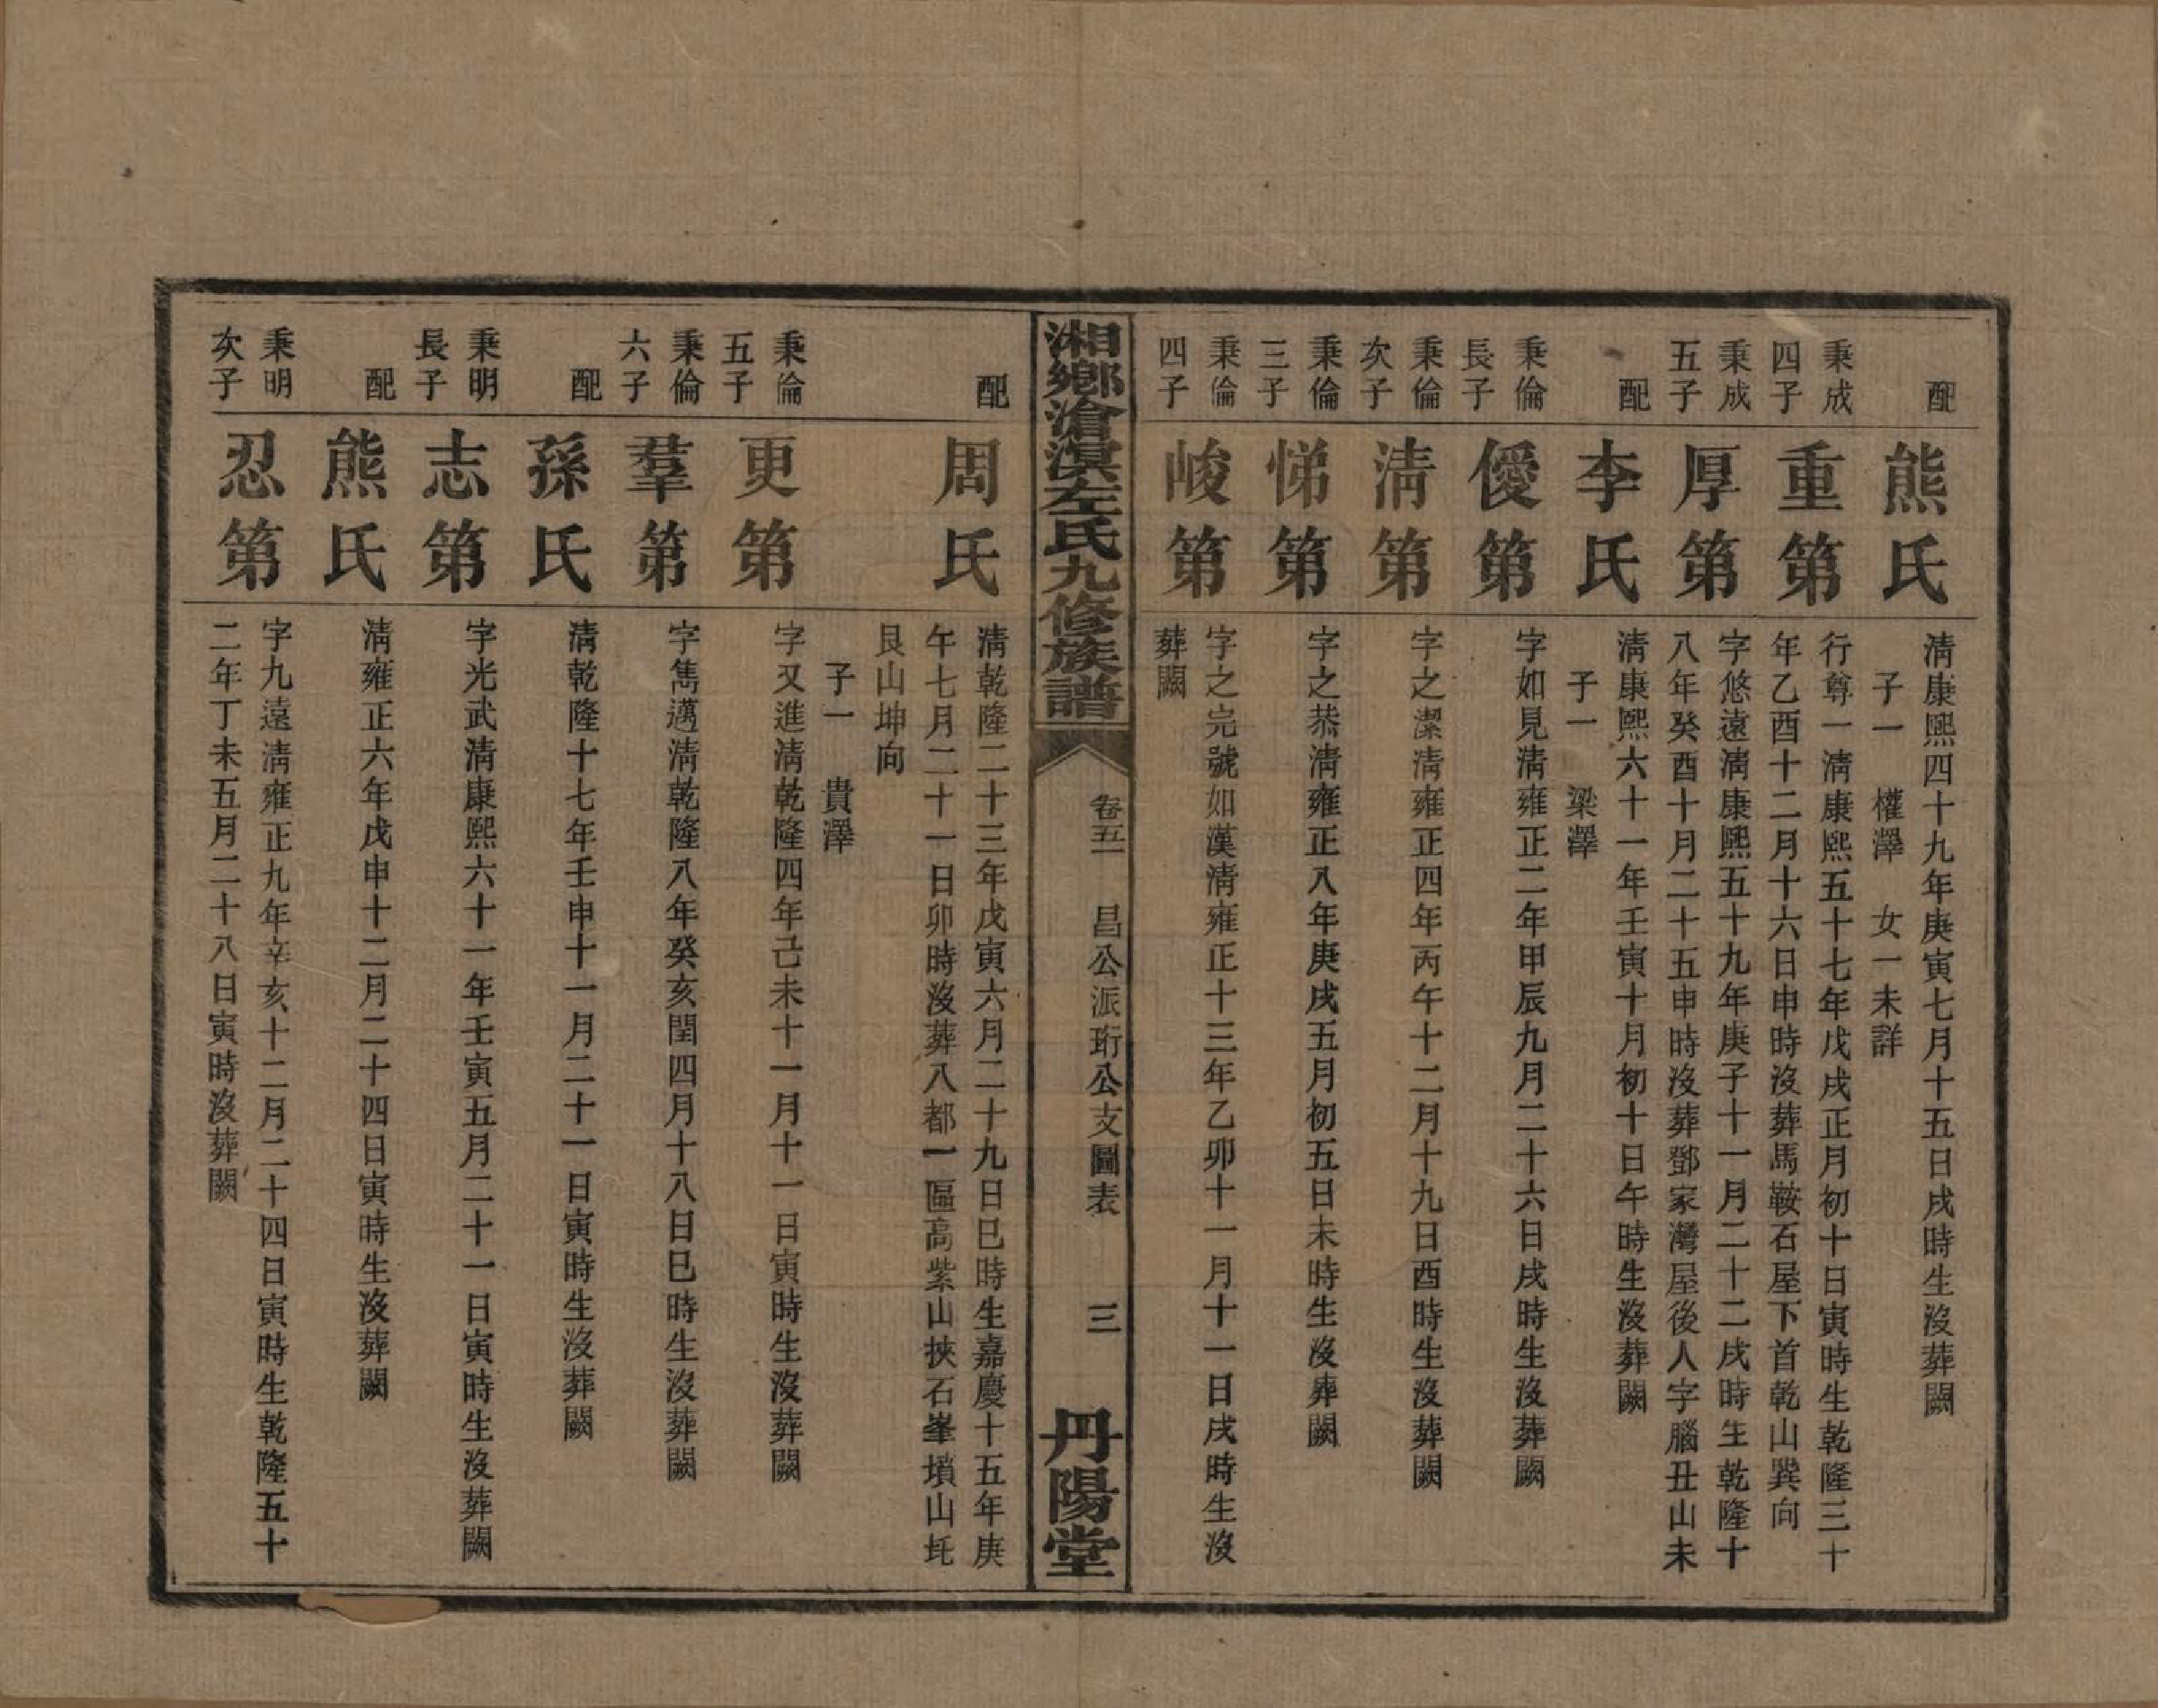 配
熊氏
清康熙四十九年庚寅七月十五日戌時生沒葬闕
子一　權澤　女一未詳
秉成
四子
重第
行尊一清康熙五十七年戊戌正月初十日寅時生乾隆三十
年乙酉十二月十六日申時沒葬馬鞍石屋下首乾山巽向
秉成
五子
厚第
字悠遠清康熙五十九年庚子十一月二十二戌時生乾隆十
八年癸酉十月二十五申時沒葬鄧家灣屋後人字腦丑山未
配
李氏
清康熙六十一年壬寅十月初十日午時生沒葬闕
子一　梁澤
秉倫
長子
優第
字如見清雍正二年甲辰九月二十六日戌時生沒葬闕
秉倫
次子
清第
字之潔清雍正四年丙午十二月十九日酉時生沒葬闕
秉倫
三子
悌第
字之恭清雍正八年庚戌五月初五日未時生沒葬闕
秉倫
四子
峻第
字之完號如漢清雍正十三年乙卯十一月十一日戌時生沒
葬闕
湘鄉滄溟左氏九修族譜
卷五　昌公派珩公支圖表　三
丹陽堂
配
周氏
清乾隆二十三年戊寅六月二十九日巳時生嘉慶十五年庚
午七月二十一日卯時沒葬八都一區高紫山挾石峯墳山坉
艮山坤向
子一　貴澤
秉倫
五子
更第
字又進清乾隆四年己未十一月十一日寅時生沒葬闕
秉倫
六子
羣第
字雋邁清乾隆八年癸亥閏四月十八日巳時生沒葬闕
配
孫氏
清乾隆十七年壬申十一月二十一日寅時生沒葬闕
秉明
長子
志第
字光武清康熙六十一年壬寅五月二十一日寅時生沒葬闕
配
熊氏
清雍正六年戊申十二月二十四日寅時生沒葬闕
秉明
次子
忍第
字九遠清雍正九年辛亥十二月二十四日寅時生乾隆五十
二年丁未五月二十八日寅時沒葬闕